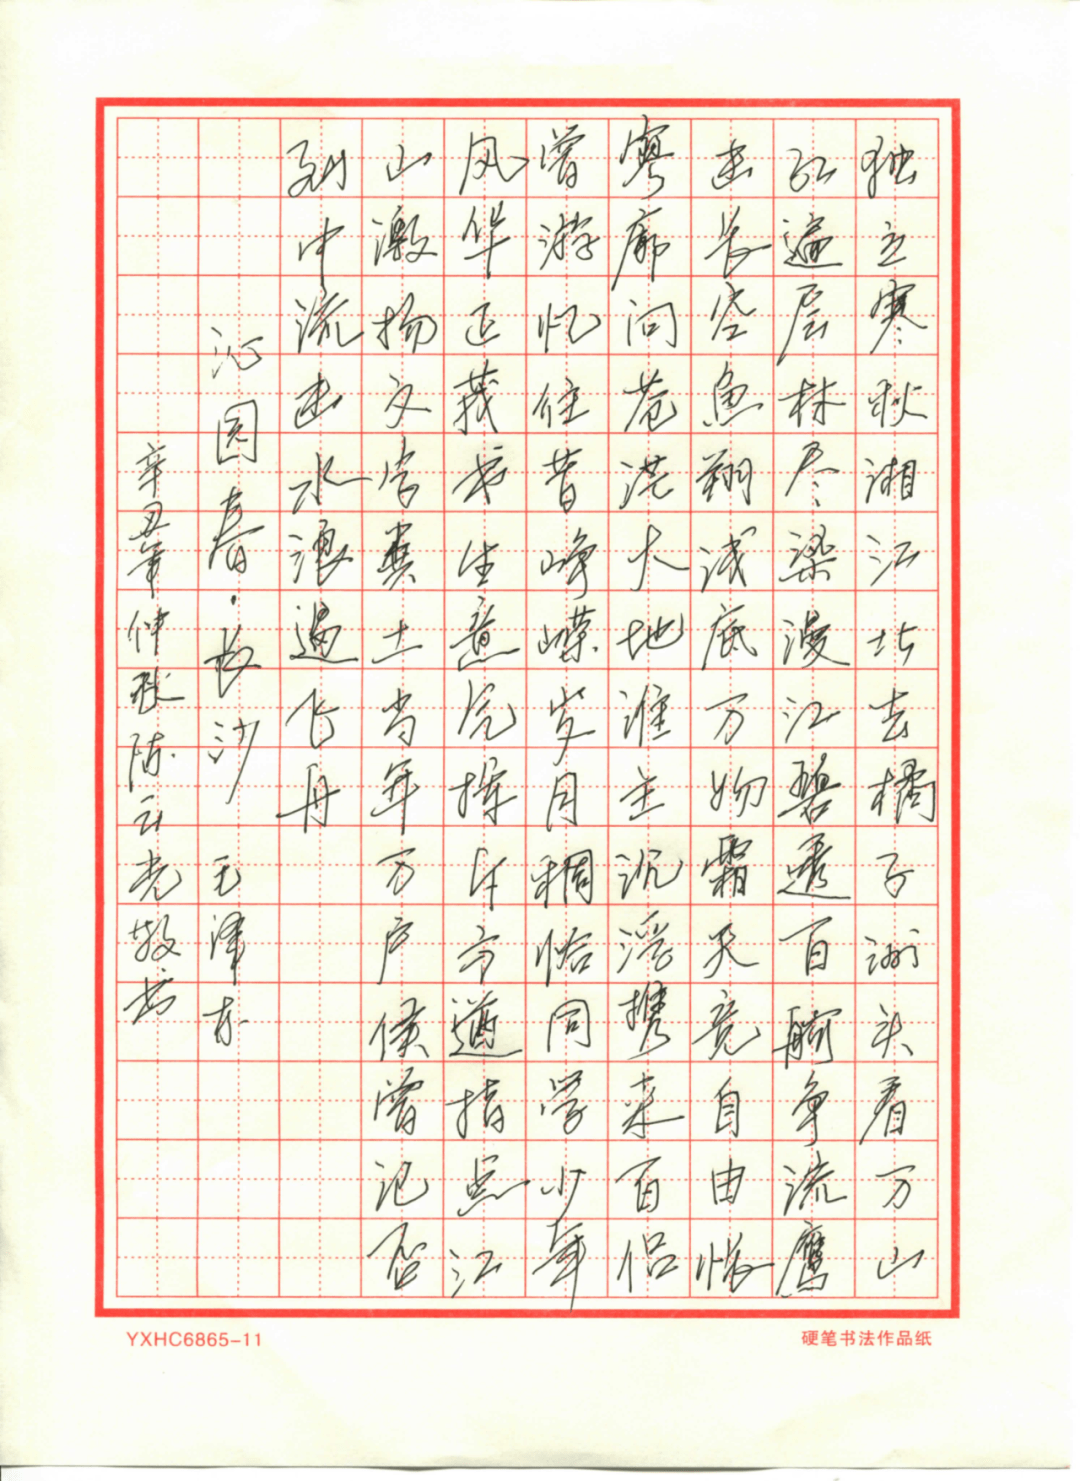 独立寒秋湘江北去橘子洲头看万山
红遍层林尽染漫江碧透百舸争流鹰
击长空鱼翔浅底万物霜天竞自由怅
寥廓问苍茫大地谁主沉浮携来百侣
曾游忆往昔峥嵘岁月稠恰同学少年
风华正茂书生意气挥斥方遒指点江
山激扬文字粪土当年万户侯曾记否
到中流击水浪遏飞舟
沁园春·长沙 毛泽东
辛丑年仲秋陈云光敬书
YXHC6865-11
硬笔书法作品纸